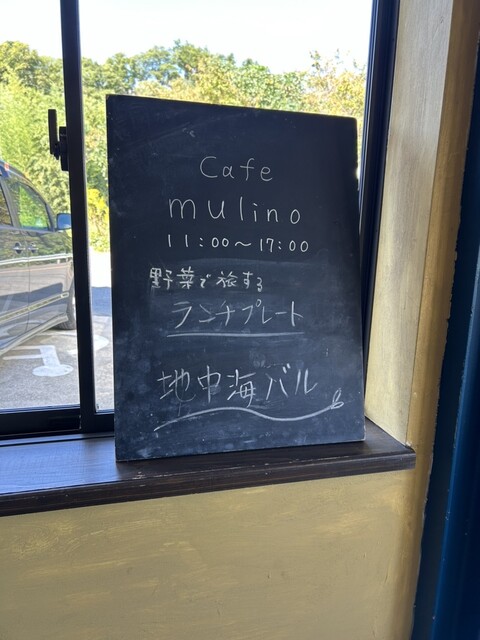 Cafe
mulino
11:00～17:00
野菜で旅する
ランチプレート
地中海バル